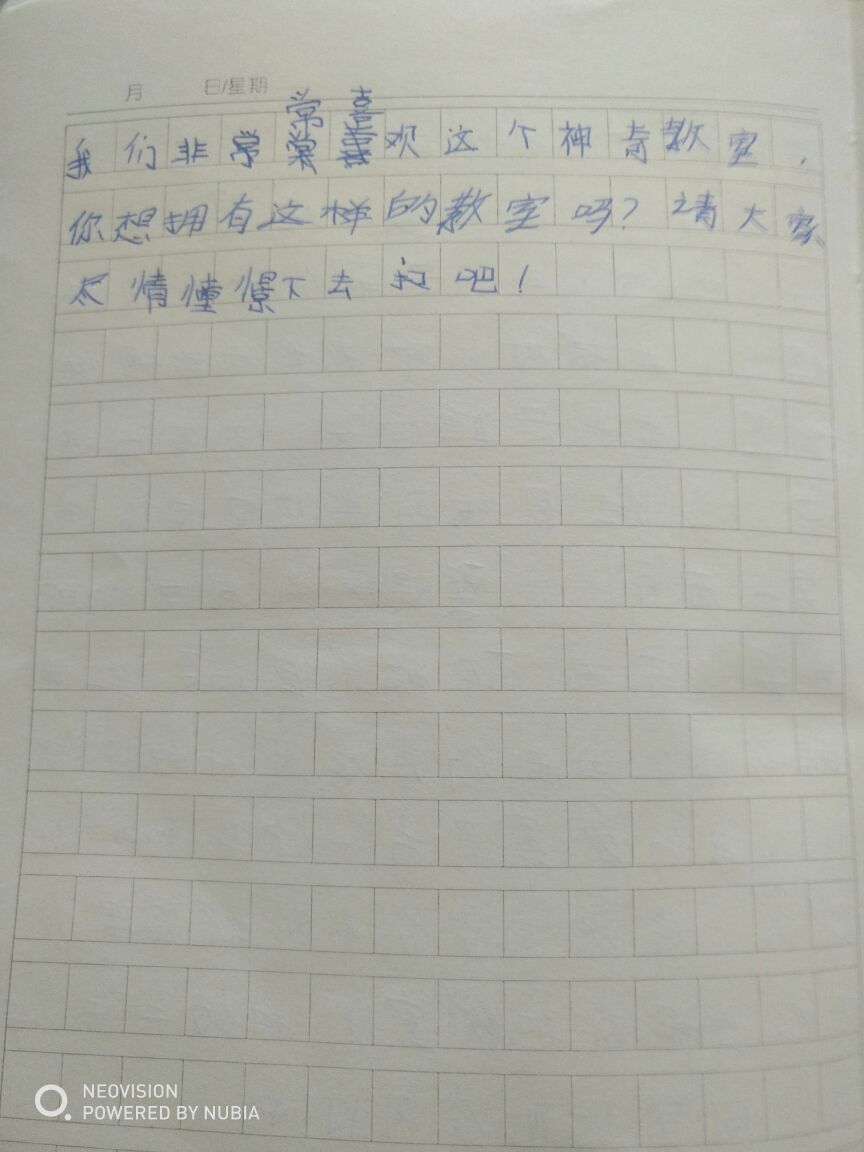 月 日/星期
常喜
我们非常常喜欢这个神奇教室，
你想拥有这样的教室吗？请大家
尽情憧憬下去的吧！
NEOVISION
POWERED BY NUBIA